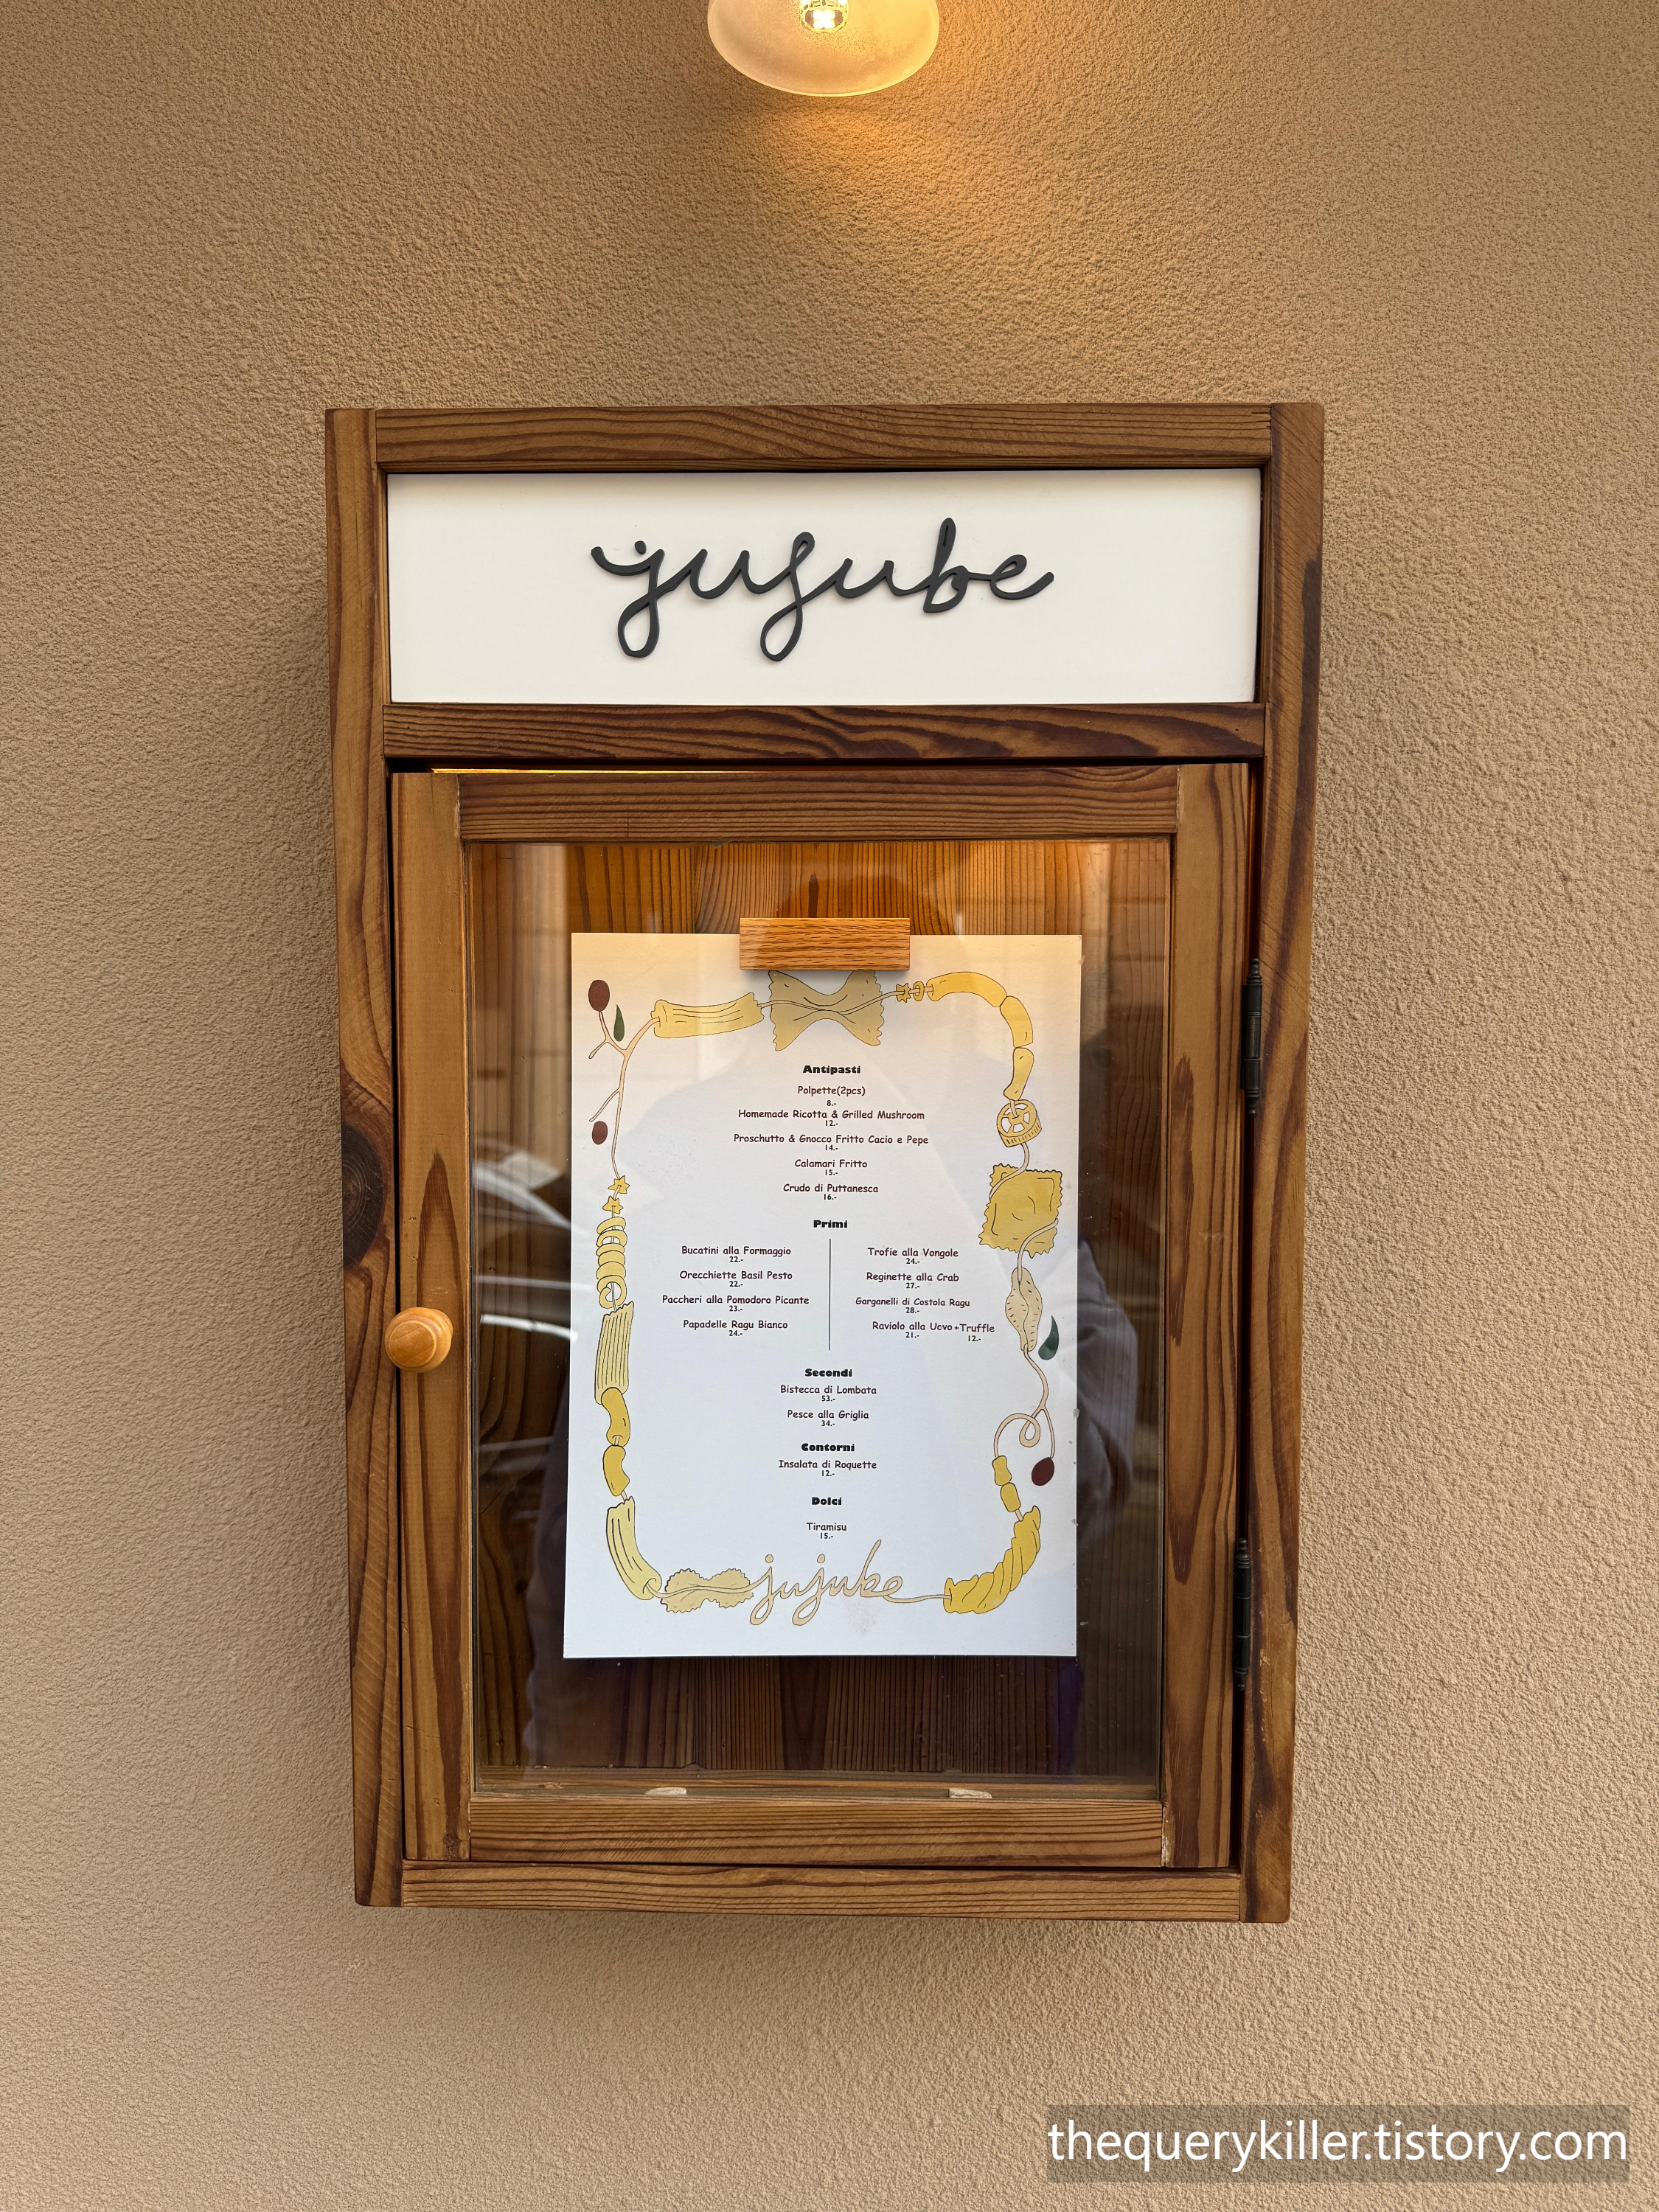 jujube
Antipasti
Polpette(2pcs)
8.-
Homemade Ricotta & Grilled Mushroom
12.-
Proschutto & Gnocco Fritto Cacio e Pepe
14.-
Calamari Fritto
15.-
Crudo di Puttanesca
16.-
Primi
Bucatini alla Formaggio
22.-
Orecchiette Basil Pesto
22.-
Paccheri alla Pomodoro Picante
23.-
Papadelle Ragu Bianco
24.-
Trofie alla Vongole
24.-
Reginette alla Crab
27.-
Garganelli di Costola Ragu
28.-
Raviolo alla Ucvo +Truffle
21.- 12.-
Secondi
Bistecca di Lombata
53.-
Pesce alla Griglia
34.-
Contorni
Insalata di Roquette
12.-
Dolci
Tiramisu
15.-
jujube
thequerykiller.tistory.com